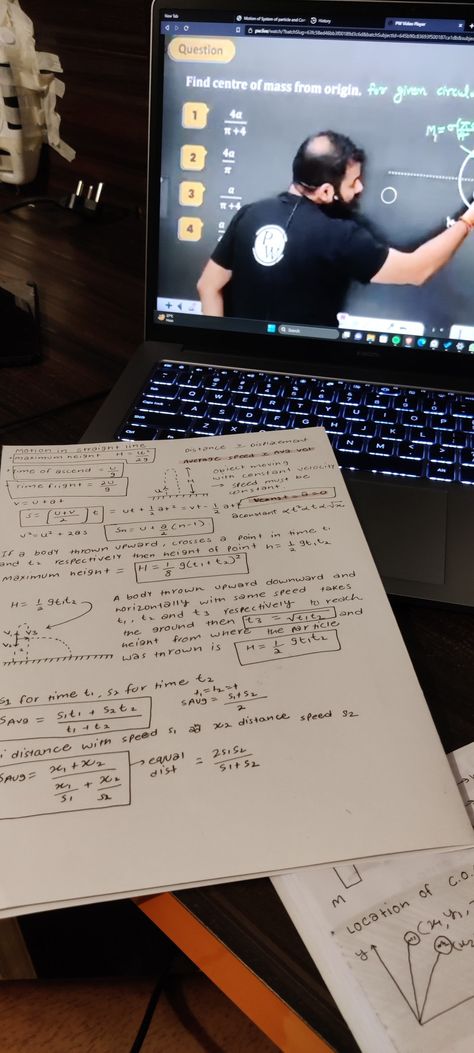 New Tab
Motion of System of particle and Cen
History
PW Video Player
Question
Find centre of mass from origin. For given circula
1 4a/π+4
2 4a/π
3 a/π+4
4
PW
Search
Motion in straight line
Distance ≥ Displacement
maximum height H = u²/2g
Average speed ≥ Avg vel
Time of ascend = u/g
Object moving with constant velocity → speed must be constant.
Time flight = 2u/g
v = u + at
S = (u+v/2) t = ut + 1/2 at² = vt - 1/2 at²
v² = u² + 2as
Sn = u + a/2 (n-1)
If a body thrown upward, crosses a point in time t₁
and t₂ respectively then height of point h = 1/2 gt₁t₂
maximum height = H = 1/8 g(t₁+t₂)²
H = 1/2 gt₁t₂
A body thrown upward downward and
horizontally with same speed takes
t₁, t₂ and t₃ respectively to reach
the ground then t₃ = √t₁t₂ and
height from where the particle
was thrown is H = 1/2 gt₁t₂
S₁ for time t₁, S₂ for time t₂
SAvg = S₁t₁ + S₂t₂/t₁+t₂
t₁=t₂=t
SAvg = S₁+S₂/2
distance with speed S₁ x₂ distance speed S₂
SAvg = x₁+x₂/x₁/S₁ + x₂/S₂ → equal dist = 2S₁S₂/S₁+S₂
M
Location of C.O.
(x₁,y₁,
(x₂
y